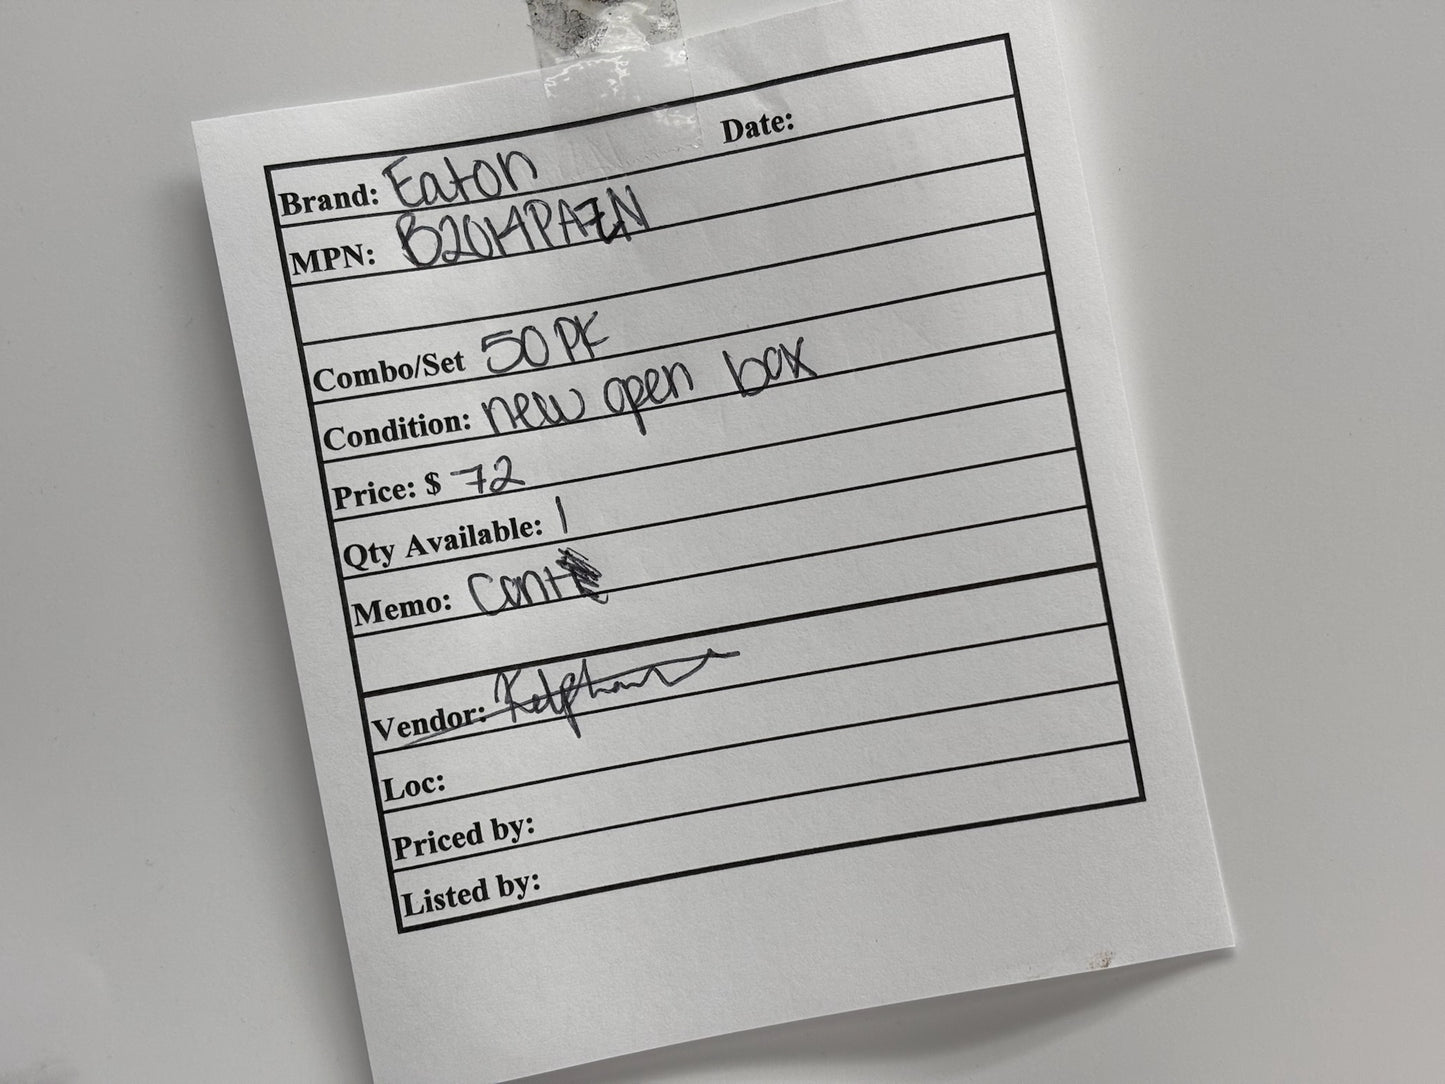 Brand: Eaton Date:
MPN: B2014PAZN
Combo/Set 50 PK
Condition: new open box
Price: $ 72
Qty Available: 1
Memo: Cont
Vendor:
Loc:
Priced by:
Listed by: